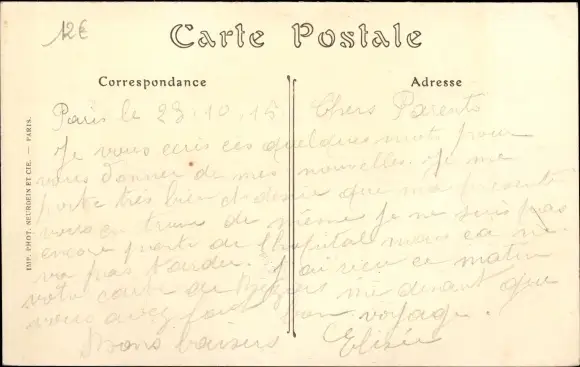 12€
Carte Postale
Correspondance
Adresse
IMP. PHOT. NEURDEIN ET CIE. — PARIS.
Paris le 23.10.15 Chers Parents
Je vous ecris ces quelques mots pour
vous donner de mes nouvelles. Je me
porte très bien et desire que ma presente
vous en trouve de même je ne suis pas
encore parti de l'hopital mais ca ne
va pas tarder. J'ai recu ce matin
votre carte de me disant que
vous avez fait bon voyage.
Bons baisers Elisée